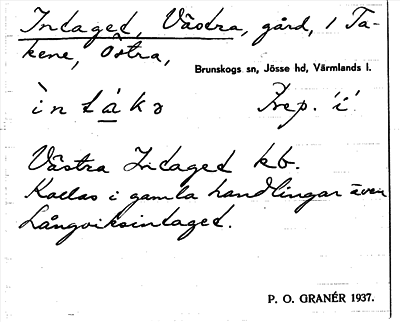 Indaged, Västra, gård, 1 Ta-
kene, Östra,
Brunskogs sn, Jösse hd, Värmlands l.
Prep. 'i'
Västra Indaged kb.
Kallas i gamla handlingar även
Långviksindaged.
P. O. GRANÉR 1937.